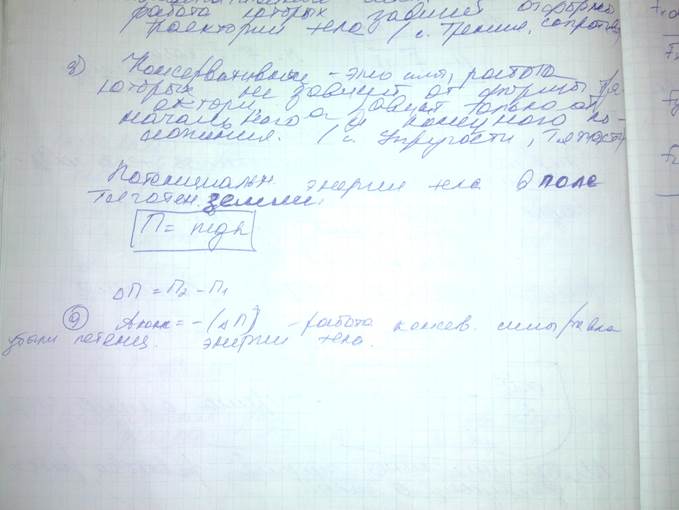 работа которых зависит от формы
траектории тела (с. трения, сопротив
8) Консервативные - это силы, работа
которых не зависит от формы тра
ектории, а зависит только от
начального и конечного по-
ложения. (с. упругости, тяжести
Потенциальн. энергия тела в поле
тяготен. земли.
П = mgh
ΔП = П2 - П1
9 Aконс = -(ΔП) - работа консев. силы равна
убыли потенц. энергии тела.